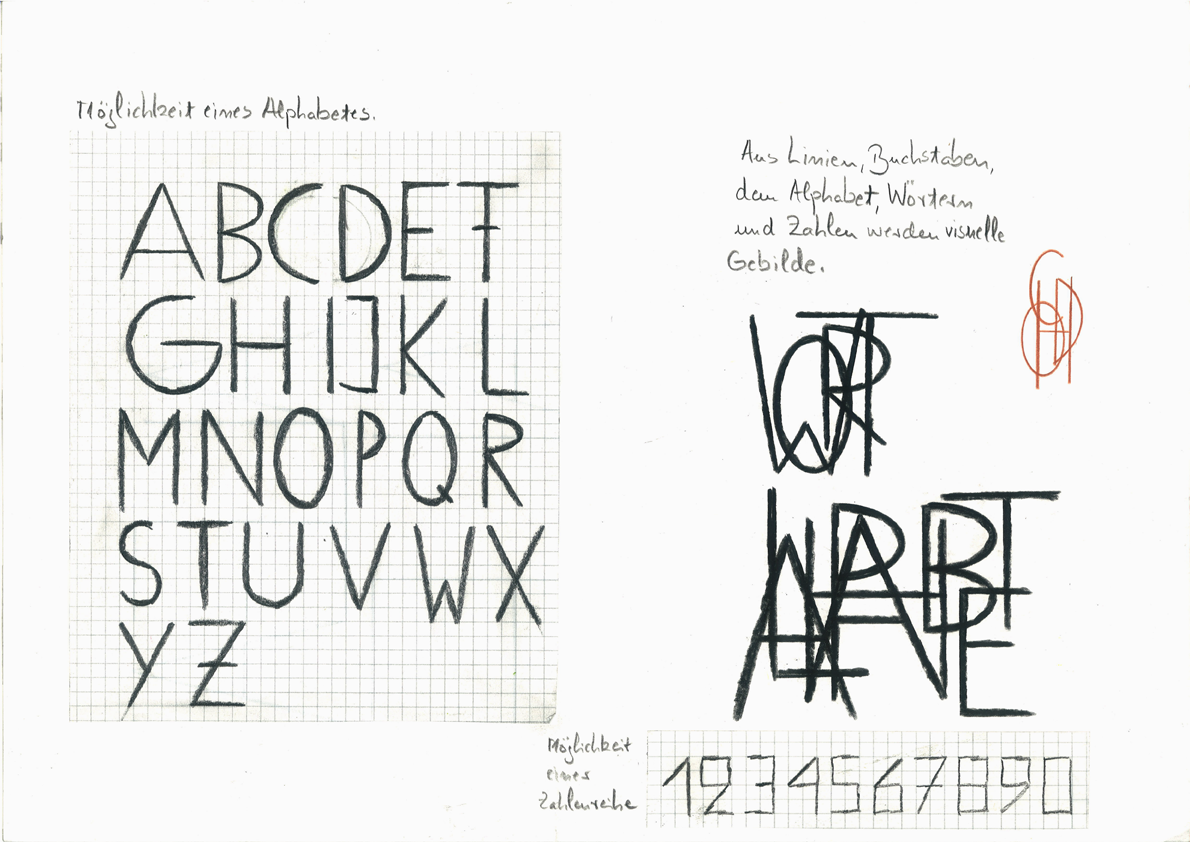 Möglichkeit eines Alphabetes.
ABCDEF
GHIJKL
MNOPQR
STUVWX
YZ
Aus Linien, Buchstaben,
dem Alphabet, Wörtern
und Zahlen werden visuelle
Gebilde.
WORT
Möglichkeit
eines
Zahlenreihe
1234567890